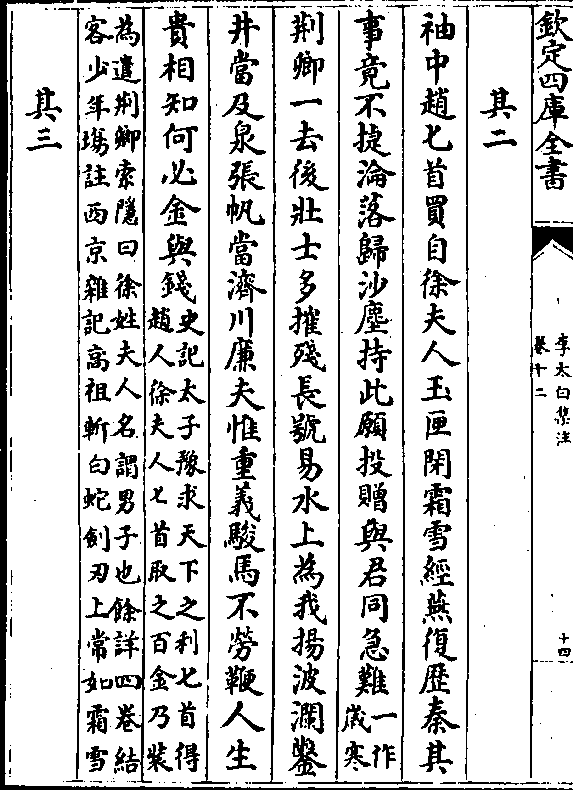 欽定四庫全書
李太白集注
卷十二
十四
其二
袖中趙匕首買自徐夫人玉匣閉霜雪經燕復歴秦其
事竟不捷淪落歸沙塵持此願投贈與君同急難一作
歲寒
荆卿一去後壯士多摧殘長號易水上為我揚波瀾鑿
井當及泉張帆當濟川廉夫惟重義駿馬不勞鞭人生
貴相知何必金與錢史記太子豫求天下之利匕首得
趙人徐夫人匕首取之百金乃裝
為遣荆卿索隱曰徐姓夫人名謂男子也餘詳四卷結
客少年塲註西京雜記高祖斬白蛇劍刃上常如霜雪
其三